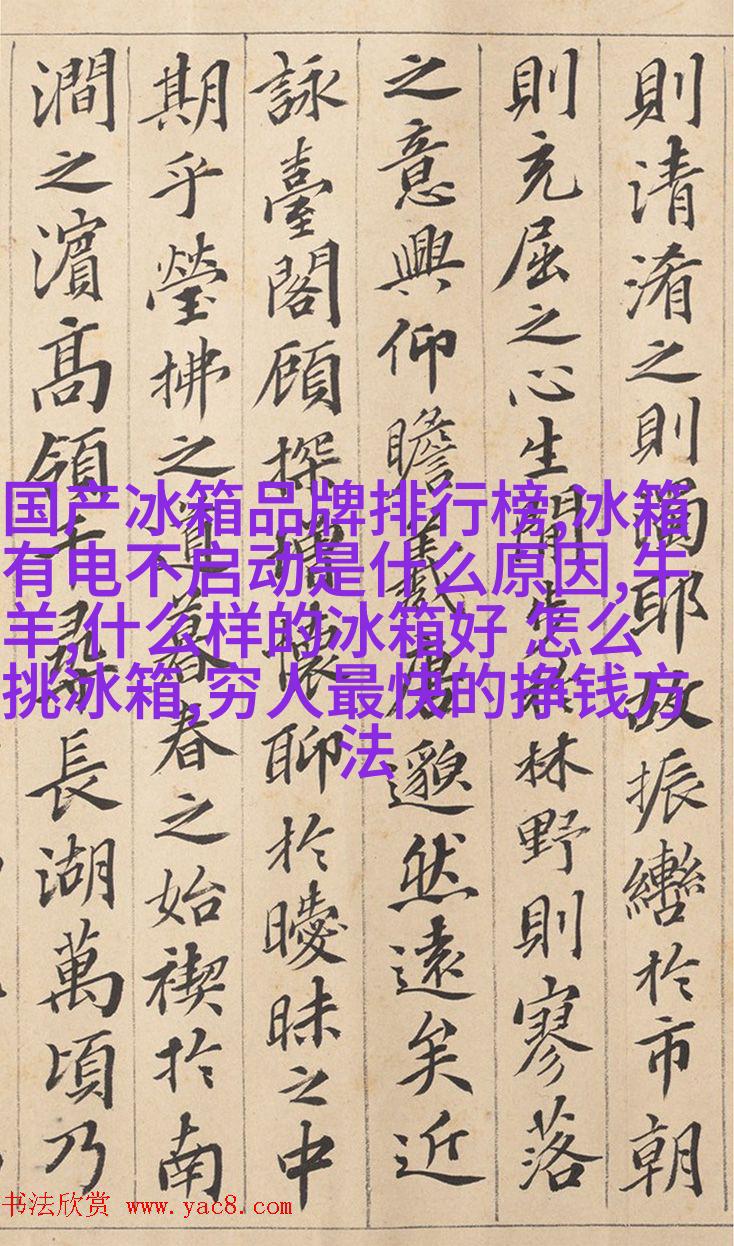 則清淆之則濁耶故振轡於市朝
則充屈之心生閒步於林野則寥落
之意興仰瞻羲唐邈然遠矣近
詠臺閣顧探增懷聊於曖昧之中
期乎瑩拂之道暮春之始禊於南
澗之濱高領千尋長湖萬頃乃
国产冰箱品牌排行榜,冰箱
有电不启动是什么原因,牛
羊,什么样的冰箱好 怎么
挑冰箱,穷人最快的挣钱方
法
书法欣赏 www.yac8.com